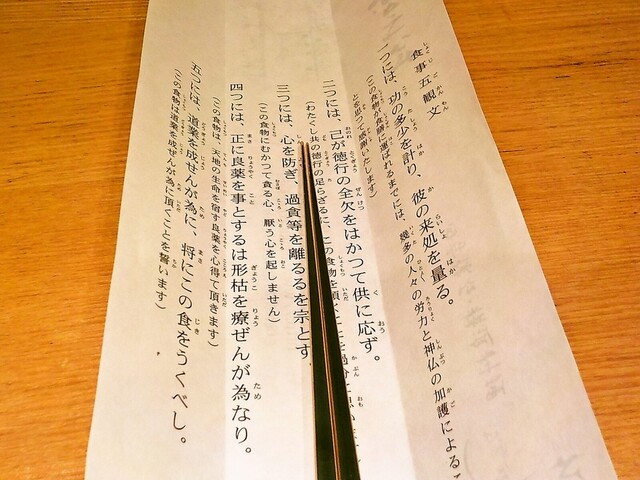 食事五観文
一つには、功の多少を計り、彼の来処を量る。
(この食物が食膳に運ばれるまでには、幾多の人々の労力と神仏の加護による
とを思って感謝いたします)
二つには、己が徳行の全欠をはかつて供に応ず。
(わたくし共の徳行の足らざるに、この食物を頂
三つには、心を防ぎ、過貪等を離るるを宗とす
(この食物にむかつて貪る心、厭う心を起しません)
四つには、正に良薬を事とするは形枯を療ぜんが為なり。
(この食物は、天地の生命を宿す良薬を心得て頂きます)
五つには、道業を成ぜんが為に、将にこの食をうくべし。
(この食物は道業を成ぜんが為に頂くことを誓います)